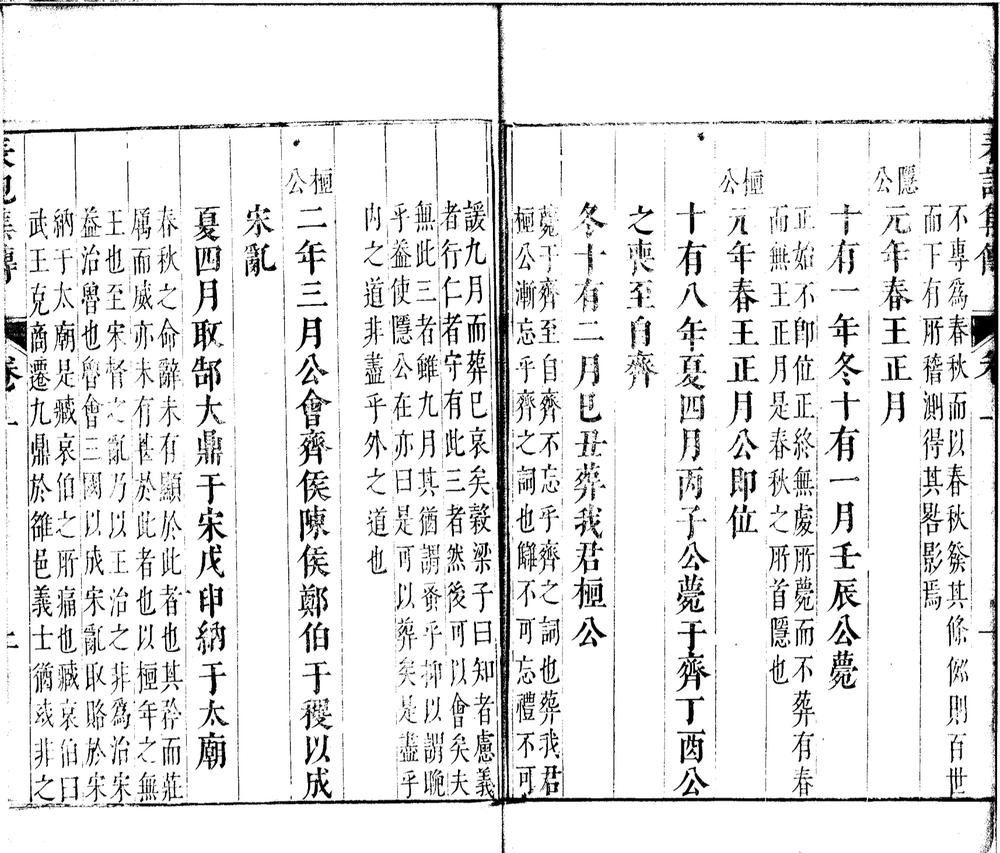 不專爲春秋而以春秋發其條例則百世
而下有所稽測得其畧影焉
隱公
元年春王正月
十有一年冬十有一月壬辰公薨
正始不即位正終無處所薨而不葬有春
而無王正月是春秋之所首隱也
桓公
元年春王正月公即位
十有八年夏四月丙子公薨于齊丁酉公
之喪至自齊
冬十有二月巳丑葬我君桓公
薨于齊至自齊不忘乎齊之詞也葬我君
桓公漸忘乎齊之詞也讎不可忘禮不可
諼九月而葬巳哀矣榖梁子曰知者慮義
者行仁者守有此三者然後可以會矣夫
無此三者雖九月其猶謂蚤乎抑以謂晚
乎葢使隱公在亦曰是可以葬矣是盡乎
内之道非盡乎外之道也
桓公
二年三月公會齊侯陳侯鄭伯于稷以成
宋亂
夏四月取郜大鼎于宋戊申納于太廟
春秋之命辭未有顯於此者也其矜而莊
厲而威亦未有甚於此者也以桓年之無
王也至宋督之亂乃以王治之非爲治宋
葢治魯也魯會三國以成宋亂取賂於宋
納于太廟是臧哀伯之所痛也臧哀伯曰
武王克商遷九鼎於雒邑義士猶或非之